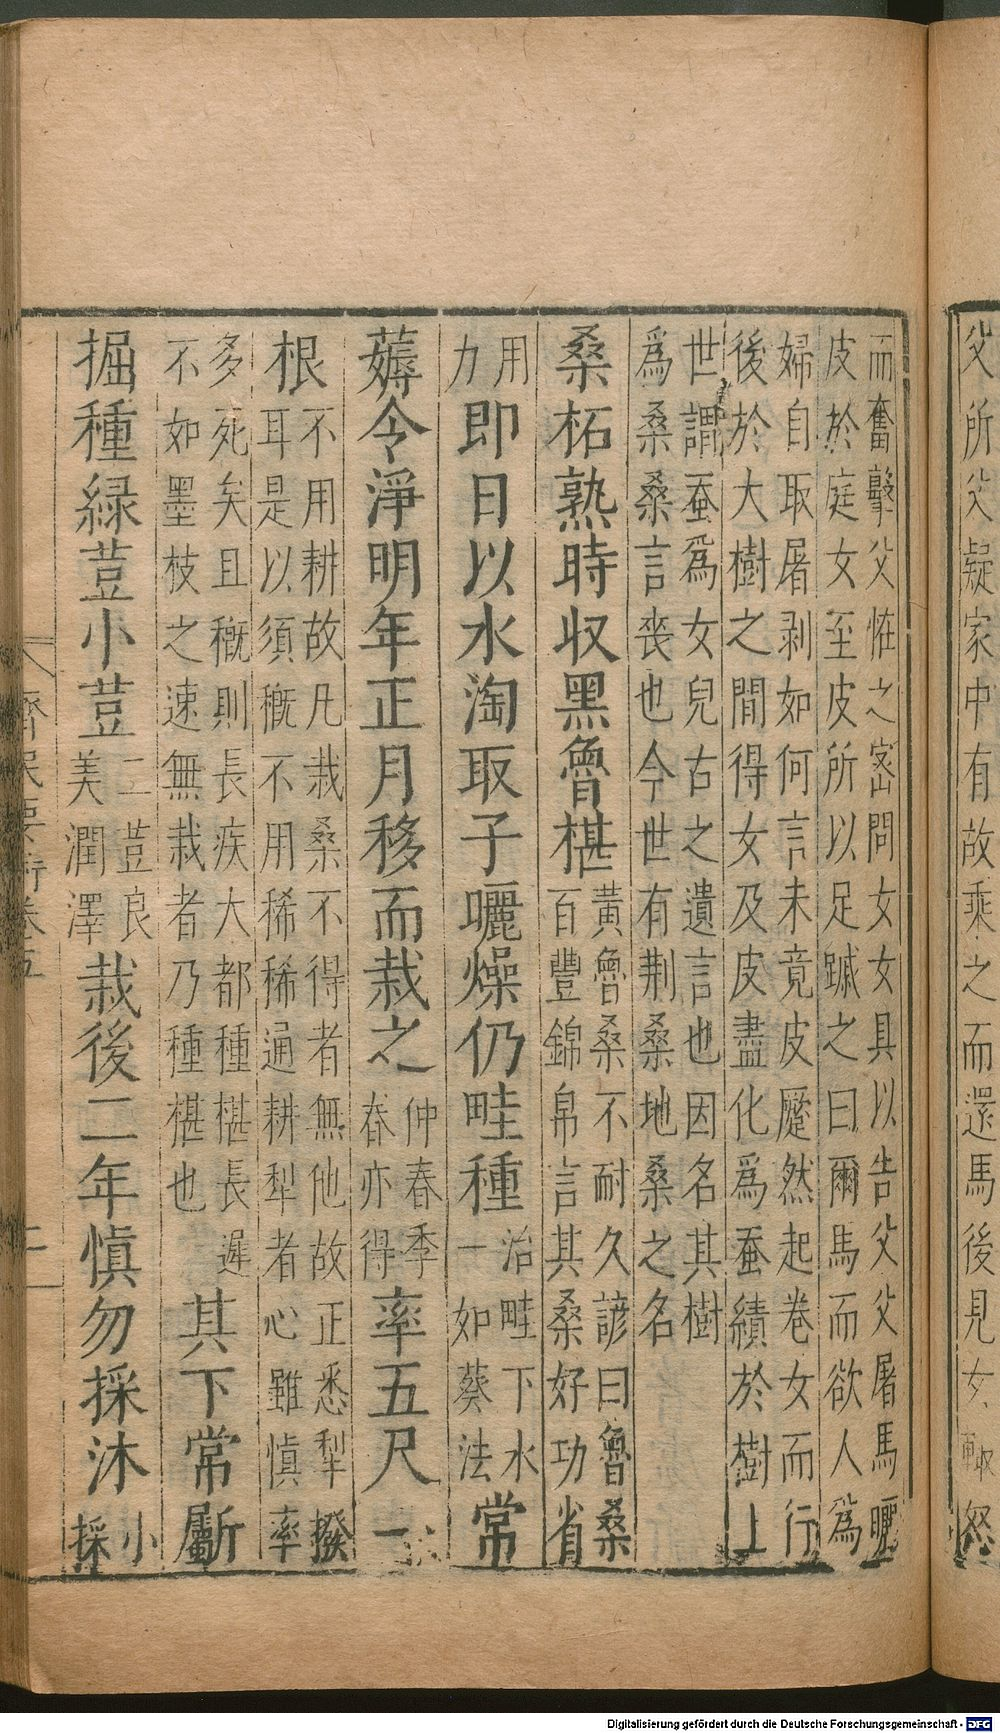 父所父疑家中有故乘之而還馬後見女輙怒
而奮擊父怪之宻問女女具以告父父屠馬曬
皮於庭女至皮所以足蹴之曰爾馬而欲人爲
婦自取屠剥如何言未竟皮蹷然起卷女而行
後於大樹之間得女及皮盡化爲蚕績於樹上
世謂蚕爲女兒古之遺言也因名其樹
爲桑桑言丧也今世有荆桑地桑之名
桑柘熟時収黑魯椹黃魯桑不耐久諺曰魯桑百豐錦帛言其桑好功省
用力即日以水淘取子曬燥仍畦種治畦下水一如葵法常
薅令淨明年正月移而栽之仲春季春亦得率五尺一
根不用耕故凡栽桑不得者無他故正悉犁撥耳是以須穊不用稀稀通耕犁者心雖慎率
多死矣且穊則長疾大都種椹長遲不如墨枝之速無栽者乃種椹也其下常斸
掘種緑荳小荳二荳良美潤澤栽後二年慎勿採沐小採
齊民要術卷五
Digitalisierung gefördert durch die Deutsche Forschungsgemeinschaft - DFG